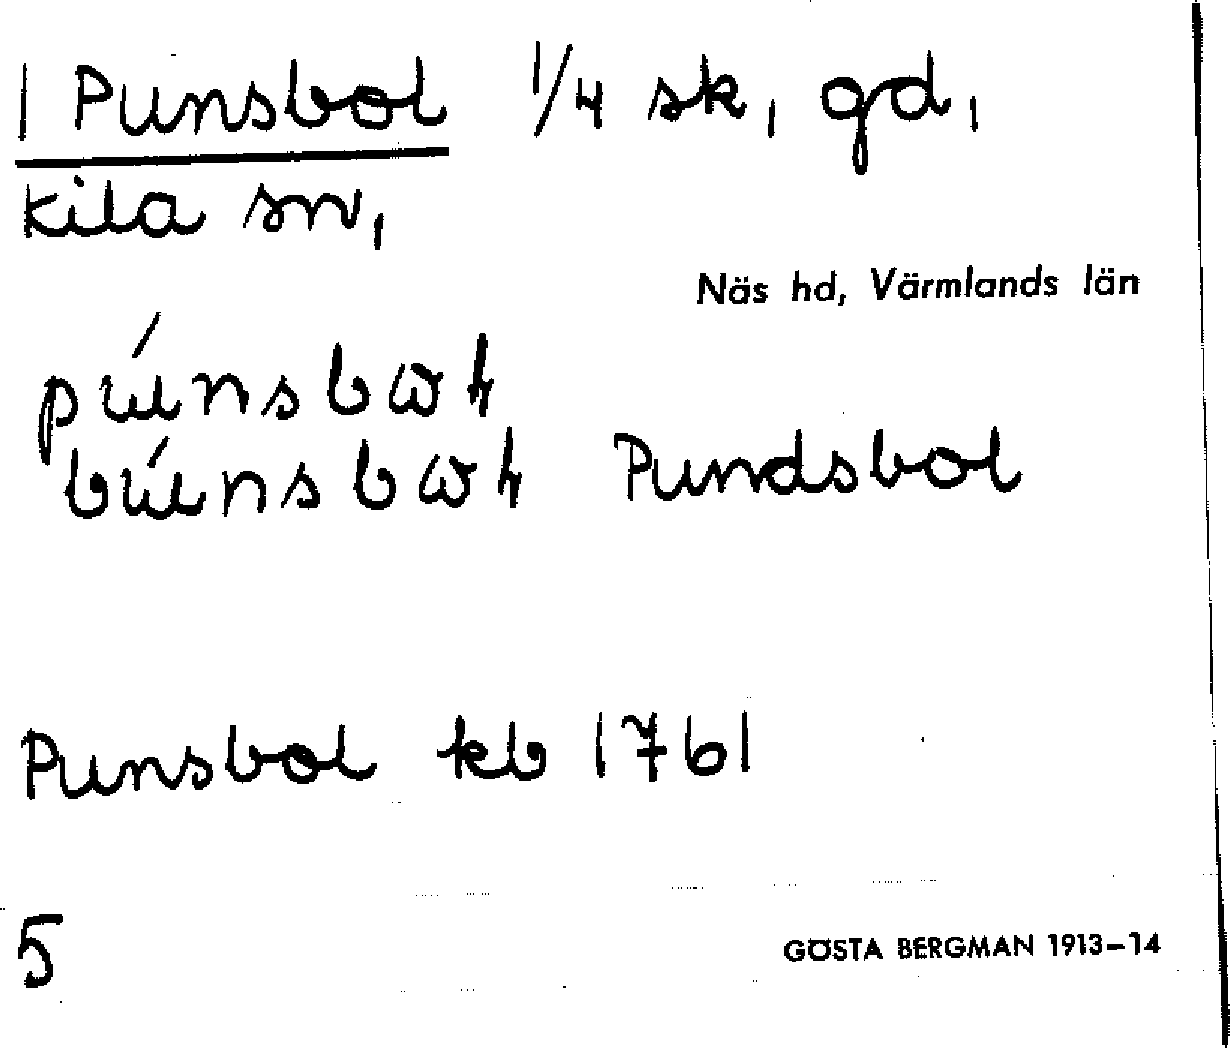 1 Punsbol 1/4 sk, gd,
Kila sn,
Näs hd, Värmlands län
Pundsbol
Punsbol kb 1761
5
GÖSTA BERGMAN 1913–14